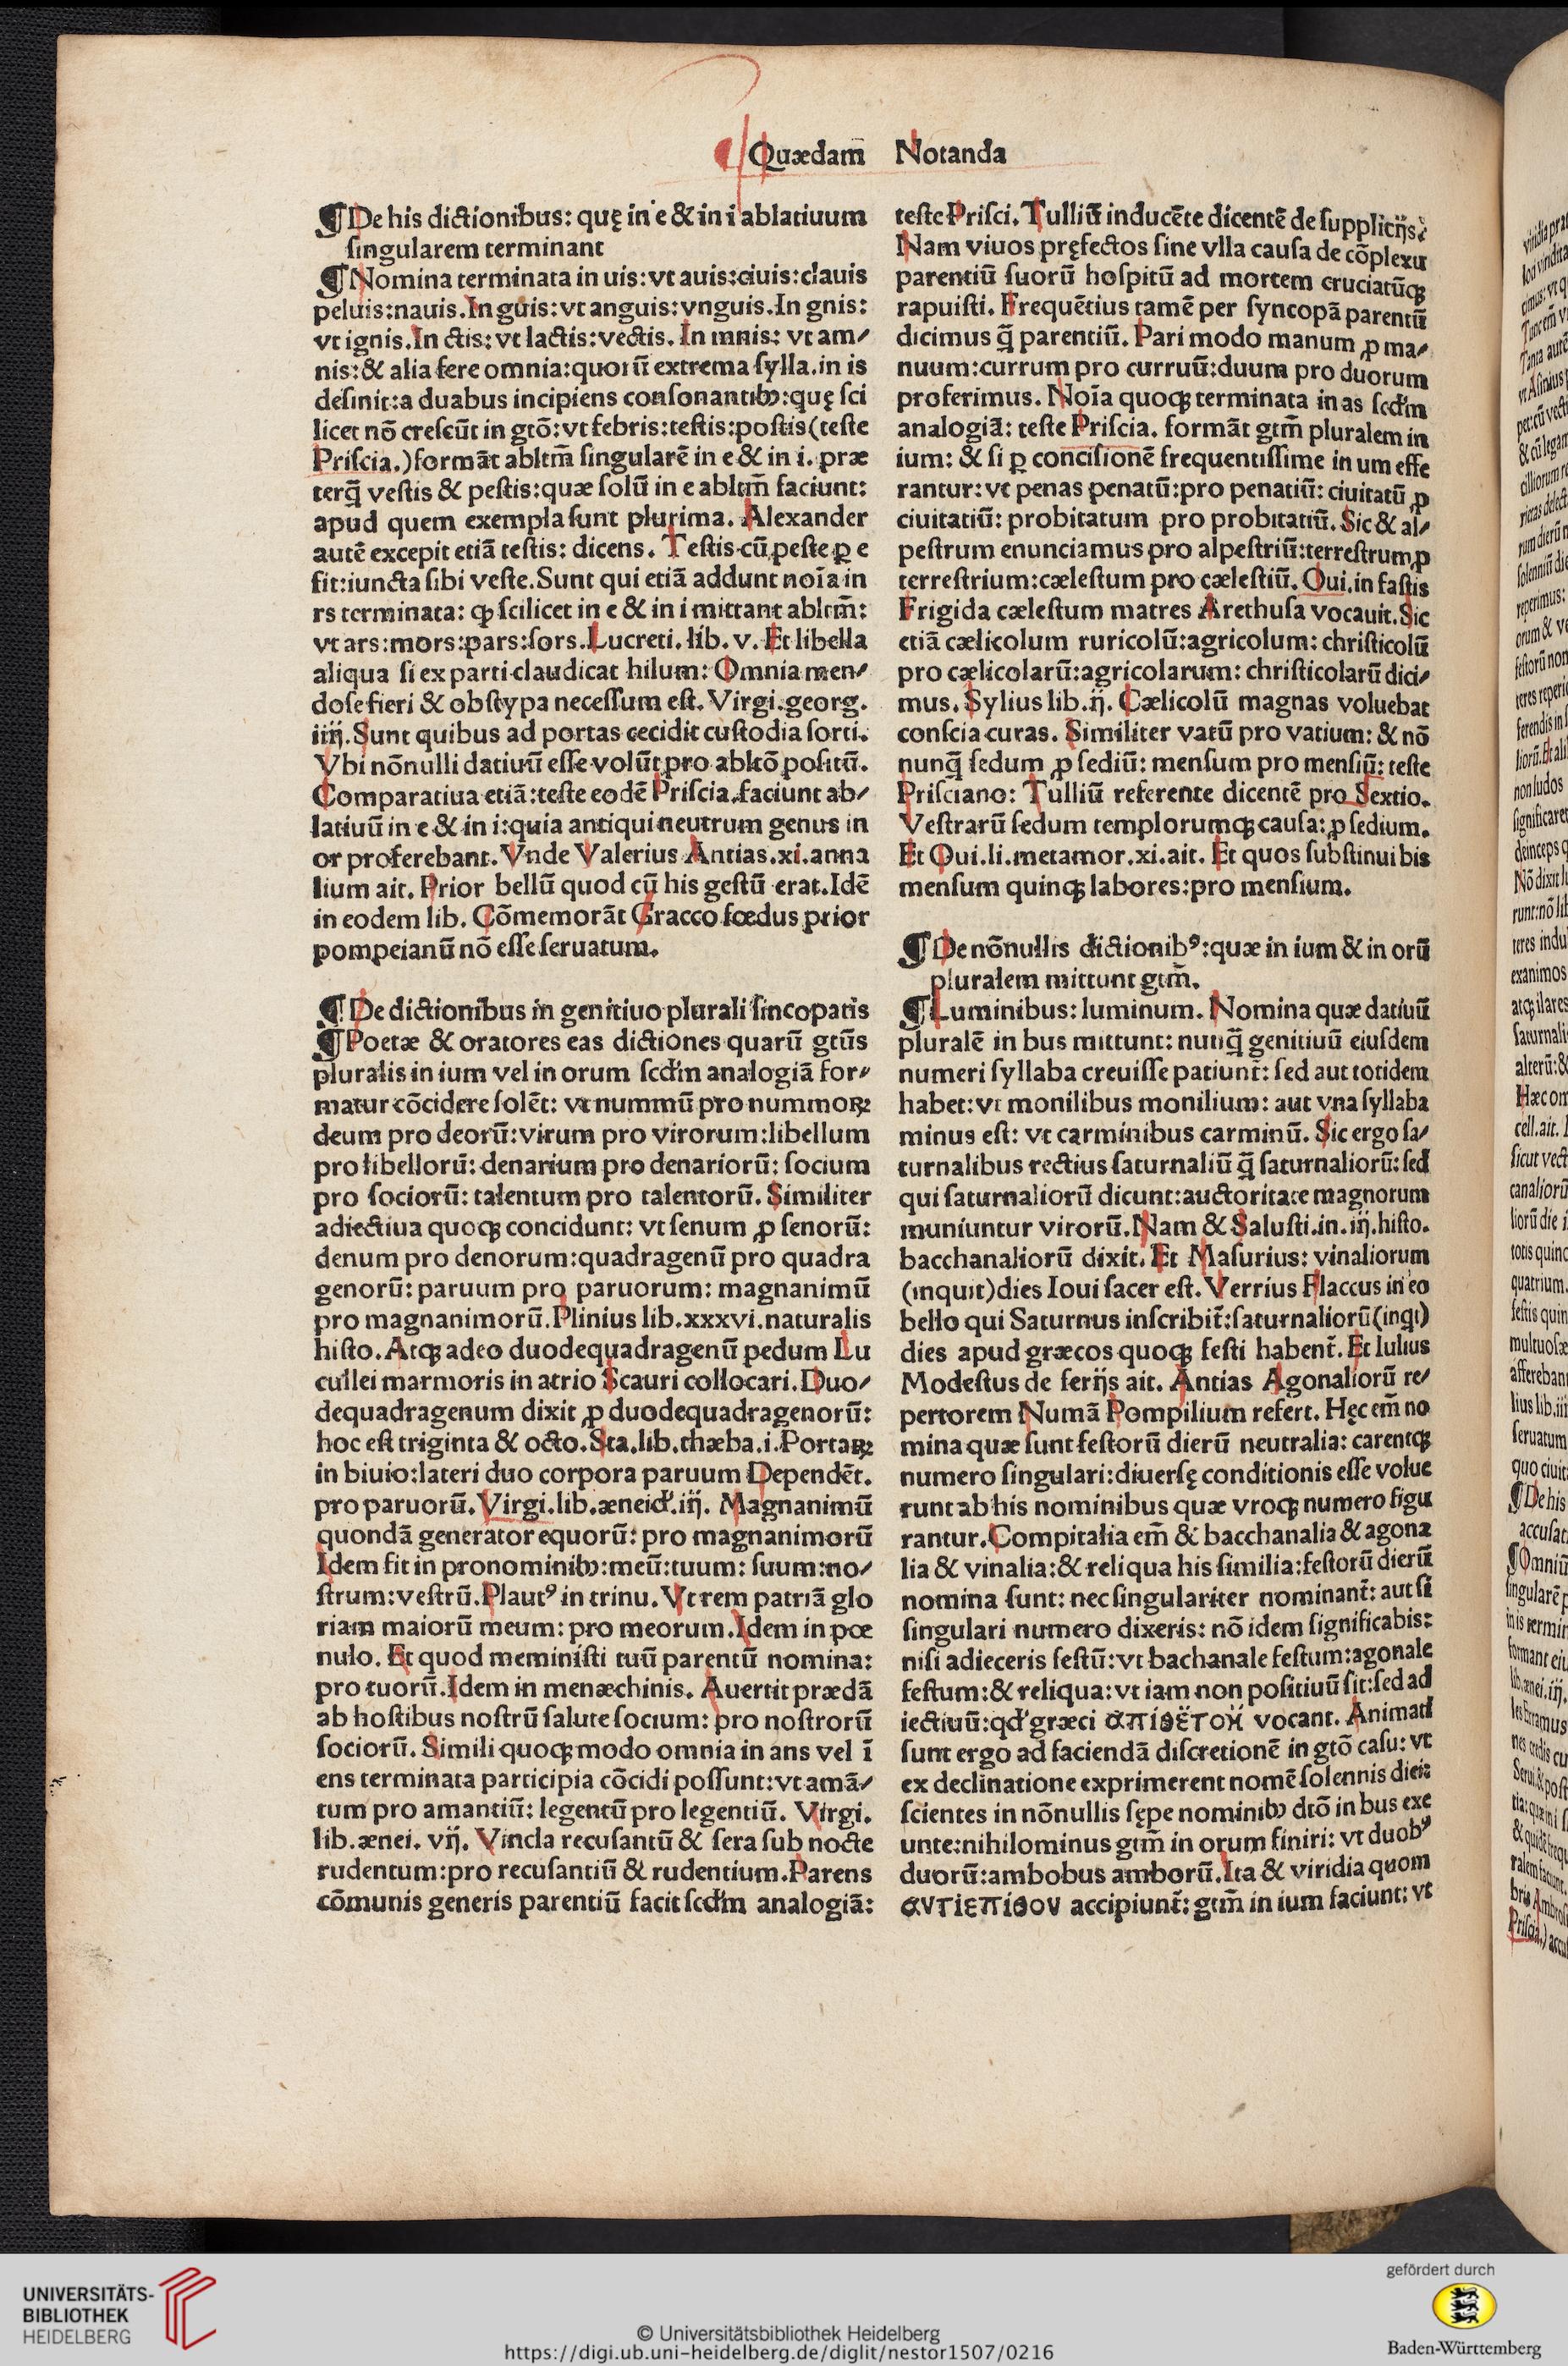 Quædam̄ Notanda
¶De his dictionibus: quę in e & in i ablatiuum
ſingularem terminant
¶Nomina terminata in uis: vt auis:ciuis:clauis
peluis:nauis.In guis: vt anguis: vnguis.In gnis:
vt ignis.In ctis: vt lactis: vectis. In mnis: vt am⸗
nis:& alia fere omnia:quorū extrema ſylla.in is
deſinit:a duabus incipiens conſonantibꝰ:quę ſci
licet nō creſcūt in gtō: vt febris:teſtis:poſtis(teſte
Priſcia.)formāt abltm̄ ſingularē in e & in i. præ
terq̄ veſtis & peſtis:quæ ſolū in e abltm̄ faciunt:
apud quem exempla ſunt plurima. Alexander
autē excepit etiā teſtis: dicens. Teſtis cū peſte ꝑ e
fit:iuncta ſibi veſte.Sunt qui etiā addunt noīa in
rs terminata: ꝙ ſcilicet in e & in i mittant abltm̄:
vt ars:mors:pars:ſors.Lucreti. lib. v. Et libella
aliqua ſi ex parti claudicat hilum: Omnia men⸗
doſe fieri & obſtypa neceſſum eſt. Virgi.georg.
iiij. Sunt quibus ad portas cecidit cuſtodia ſorti.
Vbi nōnulli datiuū eſſe volūt pro abltō poſitū.
Comparatiua etiā:teſte eodē Priſcia.faciunt ab⸗
latiuū in e & in i:quia antiqui neutrum genus in
or proferebant. Vnde Valerius Antias.xi.anna
lium ait. Prior bellū quod cū his geſtū erat.Idē
in eodem lib. Cōmemorāt Gracco fœdus prior
pompeianū nō eſſe ſeruatum.
¶De dictionibus in genitiuo plurali ſincopatis
¶Poetæ & oratores eas dictiones quarū gtūs
pluralis in ium vel in orum ſcd'm analogiā for⸗
matur cōcidere ſolēt: vt nummū pro nummoꝝ
deum pro deorū: virum pro virorum:libellum
pro libellorū: denarium pro denariorū: ſocium
pro ſociorū: talentum pro talentorū. Similiter
adiectiua quoqꝫ concidunt: vt ſenum ꝓ ſenorū:
denum pro denorum:quadragenū pro quadra
genorū: paruum pro paruorum: magnanimū
pro magnanimorū.Plinius lib.xxxvi.naturalis
hiſto. Atqꝫ adeo duodequadragenū pedum Lu
cullei marmoris in atrio Scauri collocari. Duo⸗
dequadragenum dixit ꝓ duodequadragenorū:
hoc eſt triginta & octo. Sta.lib.thæba.i.Portaꝝ
in biuio:lateri duo corpora paruum Dependēt.
pro paruorū. Virgi.lib.æneid'.iij. Magnanimū
quondā generator equorū: pro magnanimorū
Idem fit in pronominibꝰ:meū:tuum: ſuum:no⸗
ſtrum: veſtrū.Plautꝰ in trinu. Vt rem patriā glo
riam maiorū meum: pro meorum.Idem in pœ
nulo. Et quod meminiſti tuū parentū nomina:
pro tuorū.Idem in menæchinis. Auertit prædā
ab hoſtibus noſtrū ſalute ſocium: pro noſtrorū
ſociorū. Simili quoqꝫ modo omnia in ans vel ī
ens terminata participia cōcidi poſſunt: vt amā⸗
tum pro amantiū: legentū pro legentiū. Virgi.
lib. ænei. vij. Vincla recuſantū & ſera ſub nocte
rudentum:pro recuſantiū & rudentium.Parens
cōmunis generis parentiū facit ſcd'm analogiā:
teſte Priſci. Tulliū inducēte dicentē de ſupplicijs:
Nam viuos pręfectos ſine vlla cauſa de cōplexu
parentiū ſuorū hoſpitū ad mortem cruciatūqꝫ
rapuiſti. Frequētius tamē per ſyncopā parentū
dicimus q̄ parentiū. Pari modo manum ꝓ ma⸗
nuum:currum pro curruū:duum pro duorum
proferimus. Noīa quoqꝫ terminata in as ſcd'm
analogiā: teſte Priſcia. formāt gtm̄ pluralem in
ium: & ſi ꝑ conciſionē frequentiſſime in um effe
rantur: vt penas penatū:pro penatiū: ciuitatū ꝓ
ciuitatiū: probitatum pro probitatiū. Sic & al⸗
peſtrum enunciamus pro alpeſtriū:terreſtrum ꝓ
terreſtrium:cæleſtum pro cæleſtiū. Oui. in faſtis
Frigida cæleſtum matres Arethuſa vocauit.Sic
etiā cælicolum ruricolū:agricolum: chriſticolū
pro cælicolarū:agricolarum: chriſticolarū dici⸗
mus. Sylius lib.ij. Cælicolū magnas voluebat
conſcia curas. Similiter vatū pro vatium: & nō
nunq̄ ſedum ꝓ ſediū: menſum pro menſiū: teſte
Priſciano: Tulliū referente dicentē pro Sextio.
Veſtrarū ſedum templorumqꝫ cauſa: ꝓ ſedium.
Et Oui.li.metamor.xi.ait. Et quos ſubſtinui bis
menſum quinqꝫ labores:pro menſium.
¶De nōnullis dictionibꝰ:quæ in ium & in orū
pluralem mittunt gtm̄.
¶Luminibus: luminum. Nomina quæ datiuū
pluralē in bus mittunt: nunq̄ genitiuū eiuſdem
numeri ſyllaba creuiſſe patiunt: ſed aut totidem
habet: vt monilibus monilium: aut vna ſyllaba
minus eſt: vt carminibus carminū. Sic ergo ſa⸗
turnalibus rectius ſaturnaliū q̄ ſaturnaliorū: ſed
qui ſaturnaliorū dicunt:auctoritate magnorum
muniuntur virorū.Nam & Saluſti.in.iij.hiſto.
bacchanaliorū dixit. Et Maſurius: vinaliorum
(inquit)dies Ioui ſacer eſt. Verrius Flaccus in eo
bello qui Saturnus inſcribit̄:ſaturnaliorū(inqt)
dies apud græcos quoqꝫ feſti habent̄. Et Iulius
Modeſtus de ferijs ait. Antias Agonaliorū re⸗
pertorem Numā Pompilium refert. Hęc em̄ no
mina quæ ſunt feſtorū dierū neutralia: carentqꝫ
numero ſingulari:diuerſę conditionis eſſe volue
runt ab his nominibus quæ vroqꝫ numero figu
rantur.Compitalia em̄ & bacchanalia & agona
lia & vinalia:& reliqua his ſimilia:feſtorū dierū
nomina ſunt: nec ſingulariter nominant̄: aut ſi
ſingulari numero dixeris: nō idem ſignificabis:
niſi adieceris feſtū: vt bachanale feſtum:agonale
feſtum:& reliqua: vt iam non poſitiuū ſit:ſed ad
iectiuū:qd' græci ἀπίθετον vocant. Animati
ſunt ergo ad faciendā diſcretionē in gtō caſu: vt
ex declinatione exprimerent nomē ſolennis diei:
ſcientes in nōnullis ſępe nominibꝰ dtō in bus exe
unte:nihilominus gtm̄ in orum finiri: vt duobꝰ
duorū:ambobus amborū. Ita & viridia quom
αντιεπίθου accipiunt̄: gtm̄ in ium faciunt: vt
UNIVERSITÄTS-
BIBLIOTHEK
HEIDELBERG
© Universitätsbibliothek Heidelberg
https://digi.ub.uni-heidelberg.de/diglit/nestor1507/0216
gefördert durch
Baden-Württemberg